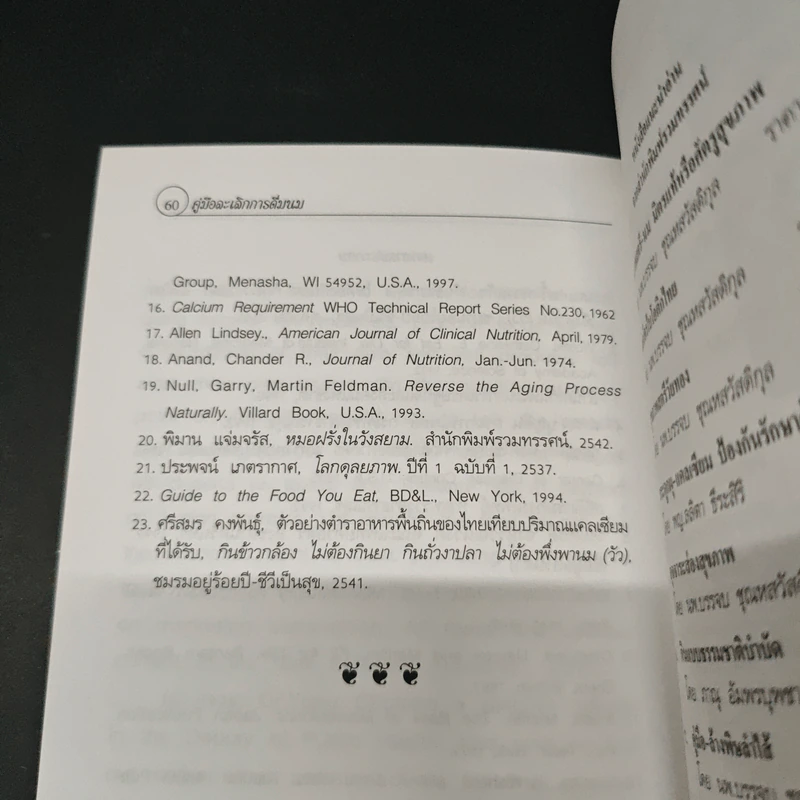 60 คู่มือละเลิกการดื่มนม
Group, Menasha, WI 54952, U.S.A., 1997.
16. Calcium Requirement WHO Technical Report Series No.230, 1962
17. Allen Lindsey., American Journal of Clinical Nutrition, April, 1979.
18. Anand, Chander R., Journal of Nutrition, Jan.-Jun. 1974.
19. Null, Garry, Martin Feldman. Reverse the Aging Process
Naturally. Villard Book, U.S.A., 1993.
20. พิมาน แจ่มจรัส, หมอฝรั่งในวังสยาม. สำนักพิมพ์รวมทรรศน์, 2542.
21. ประพจน์ เภตรากาศ, โลกดุลยภาพ. ปีที่ 1 ฉบับที่ 1, 2537.
22. Guide to the Food You Eat, BD&L., New York, 1994.
23. ศรีสมร คงพันธุ์, ตัวอย่างตำราอาหารพื้นถิ่นของไทยเทียบปริมาณแคลเซียม
ที่ได้รับ, กินข้าวกล้อง ไม่ต้องกินยา กินถั่วงาปลา ไม่ต้องพึ่งพานม (วัว),
ชมรมอยู่ร้อยปี-ชีวีเป็นสุข, 2541.
ราคา
หนังสือแนะนำอ่าน
มิตรแท้หรือศัตรูสุขภาพ
ชุณหสวัสดิกุล
นพ.บรรจบ ชุณหสวัสดิกุล
นพ.บรรจบ ชุณหสวัสดิกุล
ป้องกันรักษา
โดย พญ.ลลิตา ธีระสิริ
โดย นพ.บรรจบ ชุณหสวัสดิ
กินแบบธรรมชาติบำบัด
โดย ภาณุ อัมพรบุพชา
คู่มือ-ล้างพิษลำไส้
โดย นพ.บรรจบ